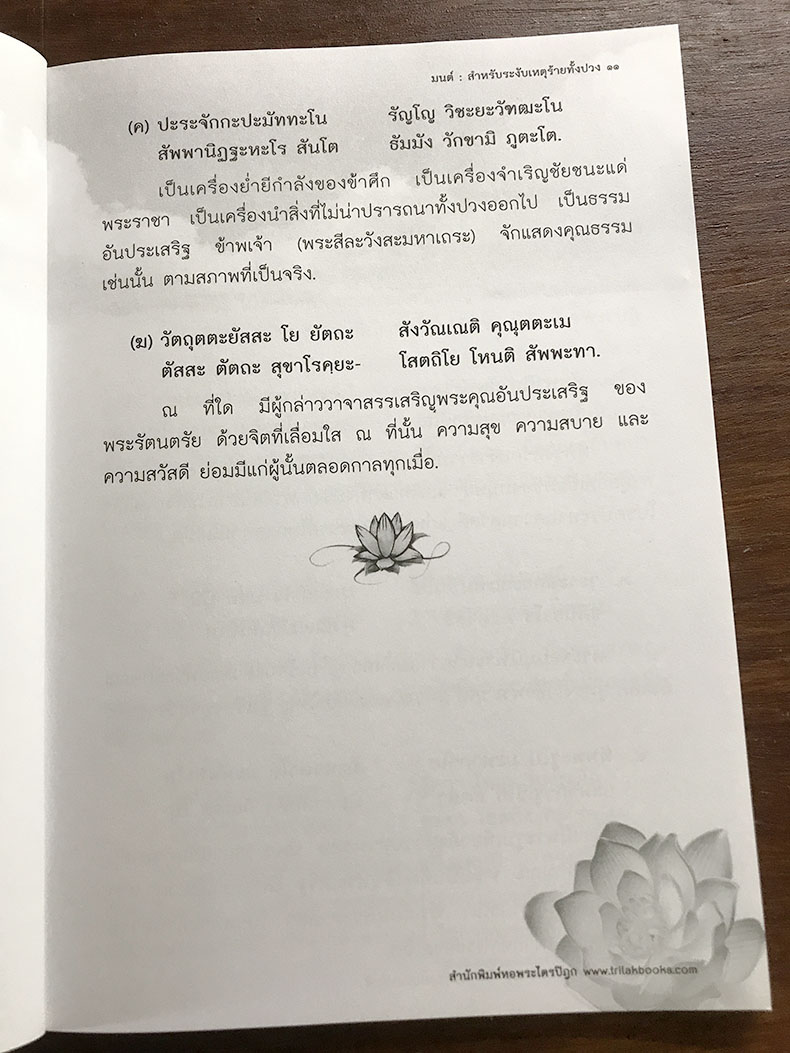 มนต์ : สำหรับระงับเหตุร้ายทั้งปวง ๑๑
(ค) ปะระจักกะปะมัททะโน รัญโญ วิชะยะวัฑฒะโน
สัพพานิฏฐะหะโร สันโต ธัมมัง วักขามิ ภูตะโต.
เป็นเครื่องย่ำยีกำลังของข้าศึก เป็นเครื่องจำเริญชัยชนะแด่
พระราชา เป็นเครื่องนำสิ่งที่ไม่น่าปรารถนาทั้งปวงออกไป เป็นธรรม
อันประเสริฐ ข้าพเจ้า (พระสีละวังสะมหาเถระ) จักแสดงคุณธรรม
เช่นนั้น ตามสภาพที่เป็นจริง.
(ฆ) วัตถุตตะยัสสะ โย ยัตถะ สังวัณเณติ คุณุตตะเม
ตัสสะ ตัตถะ สุขาโรคฺยะ- โสตถิโย โหนติ สัพพะทา.
ณ ที่ใด มีผู้กล่าววาจาสรรเสริญพระคุณอันประเสริฐ ของ
พระรัตนตรัย ด้วยจิตที่เลื่อมใส ณ ที่นั้น ความสุข ความสบาย และ
ความสวัสดี ย่อมมีแก่ผู้นั้นตลอดกาลทุกเมื่อ.
สำนักพิมพ์หอพระไตรปิฎก www.trilakbooks.com